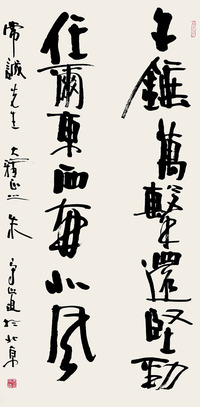 千錘萬擊還堅勁
任爾東西南北风
常誠先生大雅正之 朱守道於北京